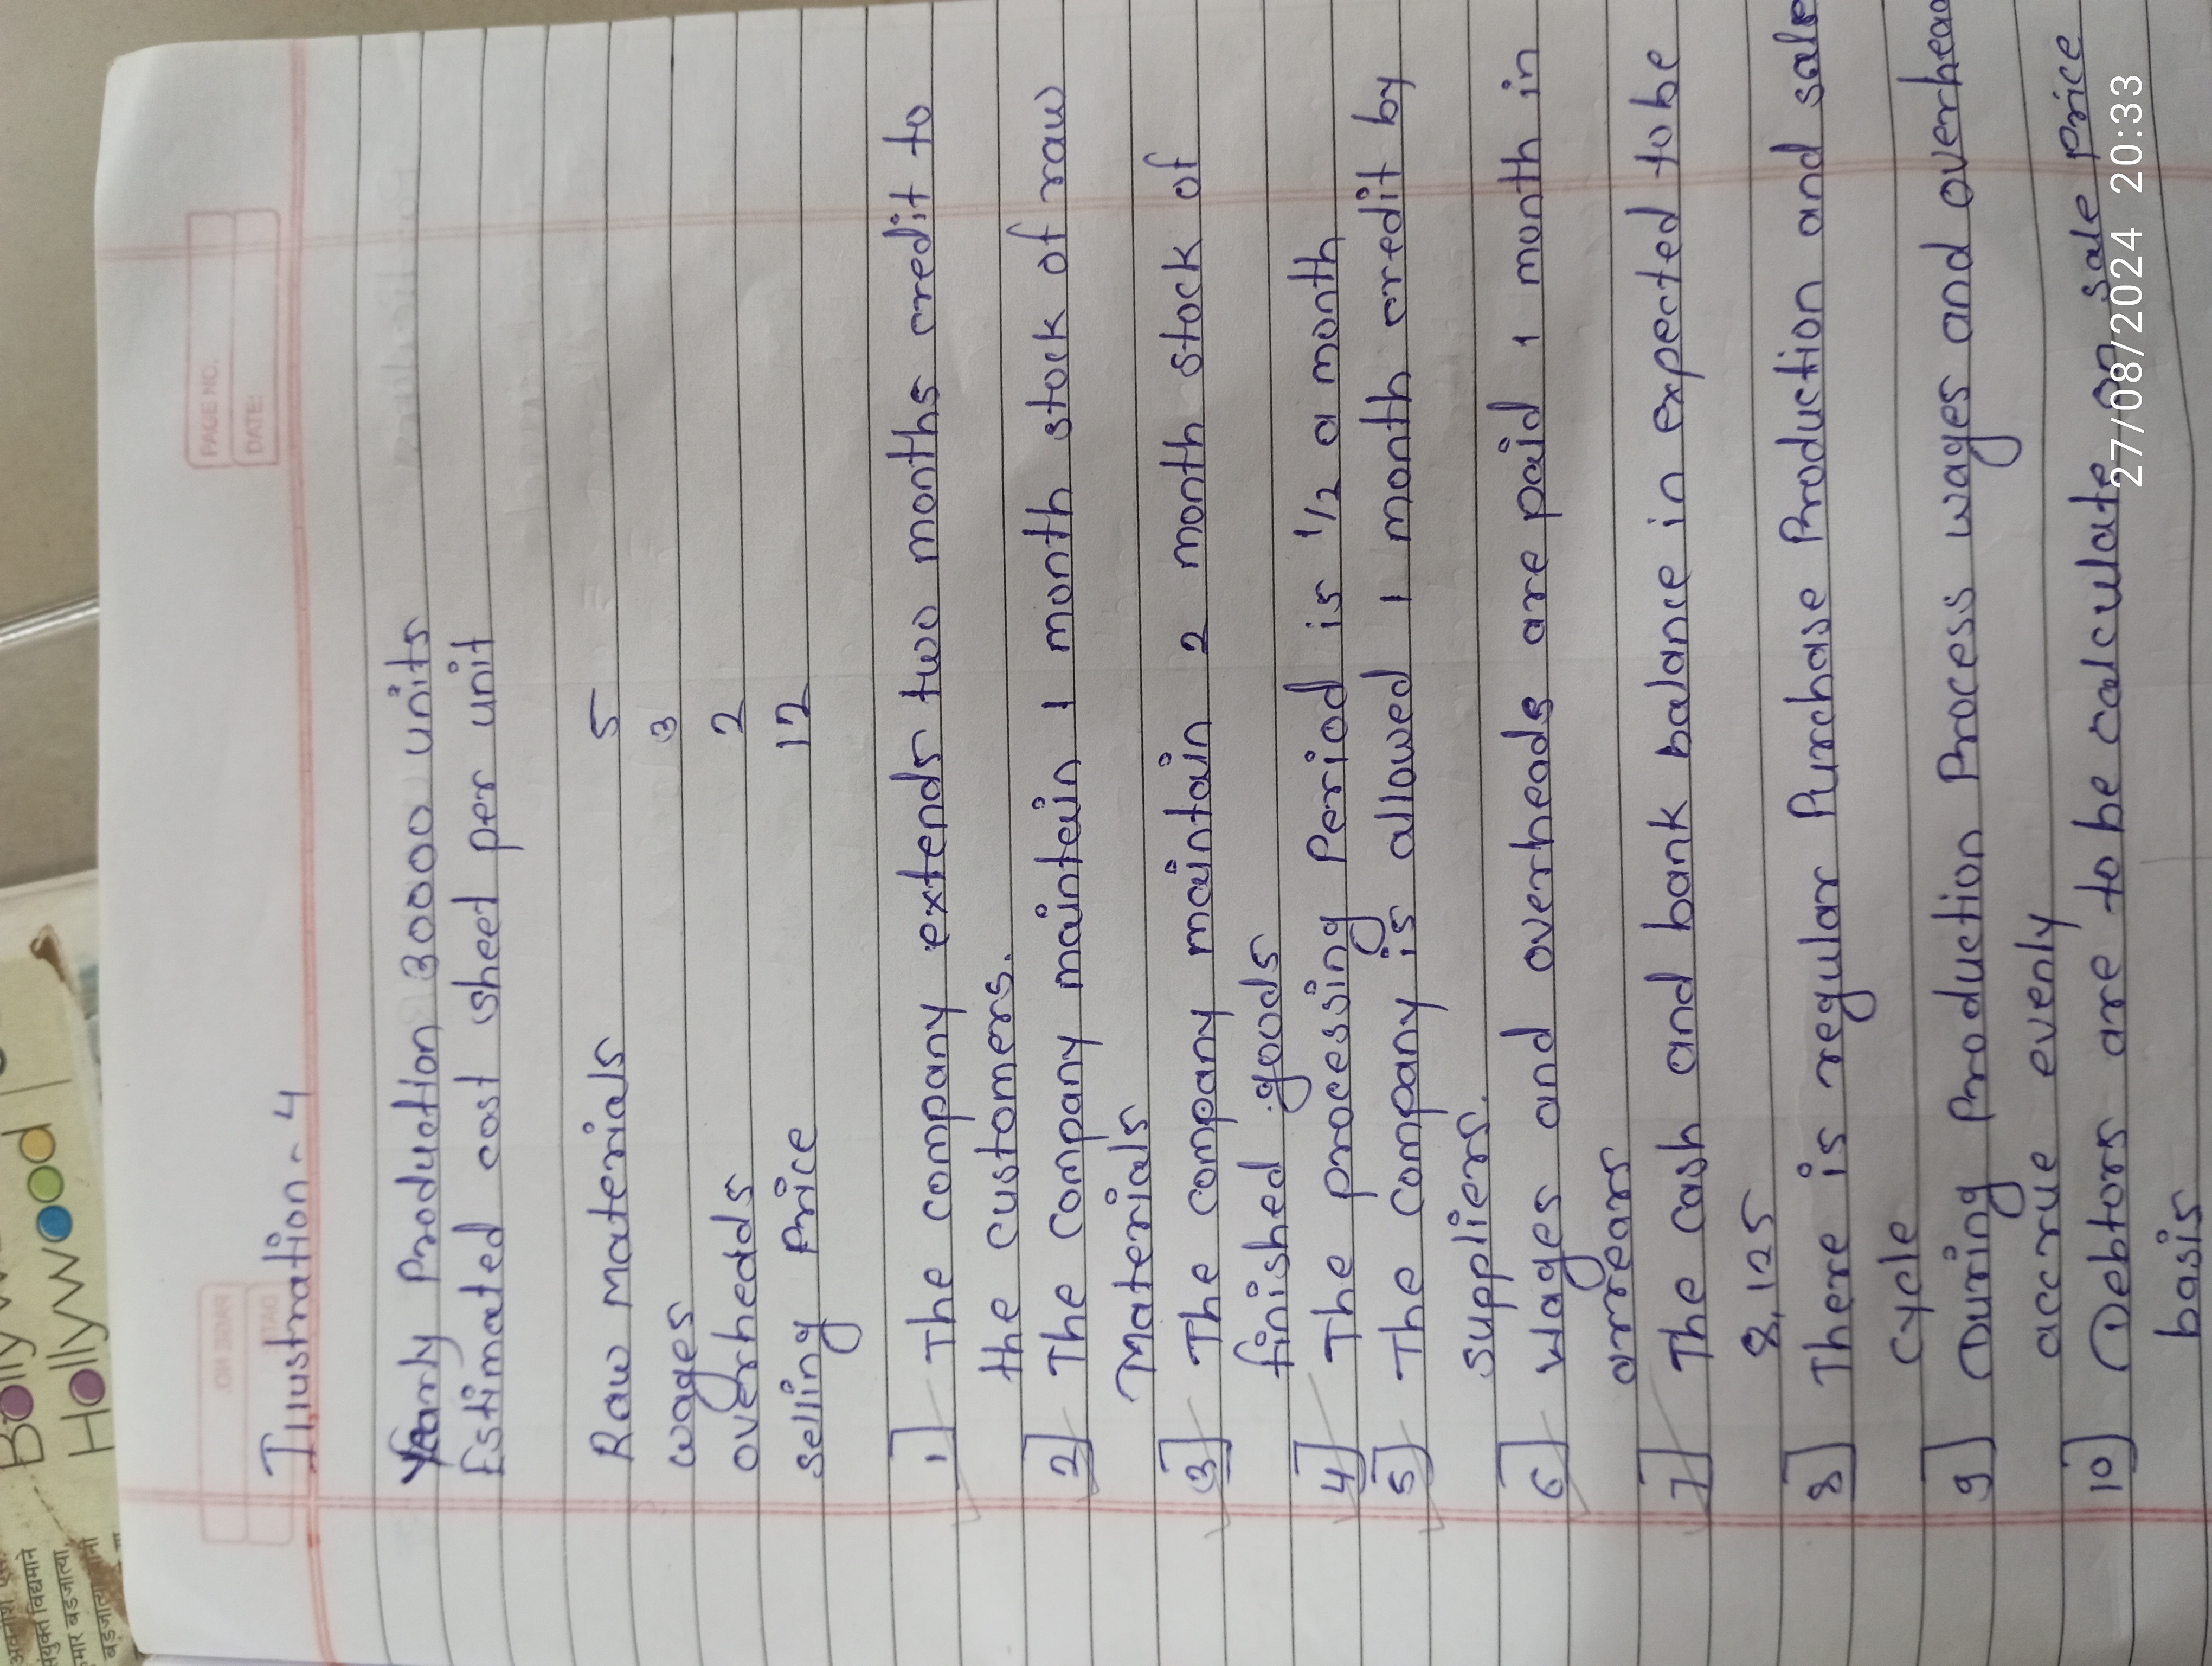 संयुक्त विद्यमाने
बडजात्या,
Hollywood
PAGE NO.
PAGE NO.
DATE:
DATE:
Illustration - 4
Yearly Production 30000 units
Estimated cost sheet per unit
Raw Materials 5
wages 3
overheads 2
selling Price 12
1] The company extends two months credit to
the customers.
2] The company maintain 1 month stock of raw
Materials
3] The company maintain 2 month stock of
finished goods
4] The processing Period is 1/2 a month
5] The company is allowed 1 month credit by
suppliers.
6] Wages and overheads are paid 1 month in
arrears
7] The cash and bank balance in expected to be
8,125
8] There is regular Purchase Production and sale
cycle
9] During Production Process wages and overhead
accrue evenly
10] Debtors are to be calculate on sale price
basis
27/08/2024 20:33